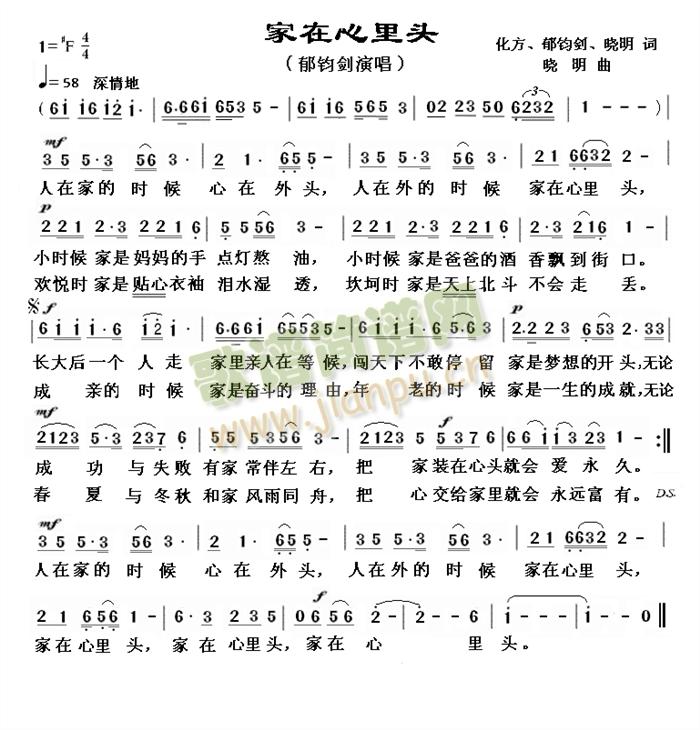 家在心里头
1=♯F 4/4
(郁钧剑演唱)
化方、郁钧剑、晓明 词
晓 明 曲
♩=58 深情地
(6i i6 i2 i· | 6·66i 6535 - | 6i i6 565 3 | 02 23 50 6232 | 1 - - -)
mf
3 5 5·3 56 3· | 2 1· 65 5· | 3 5 5·3 56 3· | 21 6632 2 - |
人在家的 时 候 心 在 外 头, 人在外的 时 候 家在心里 头,
p
221 2·3 2216 | 5 556 3 - | 221 2·3 2216 | 5·3 216 1 - |
小时候 家是妈妈的手 点灯熬 油, 小时候 家是爸爸的酒 香飘到街 口。
欢悦时 家是贴心衣袖 泪水湿 透, 坎坷时 家是天上北斗 不会走 丢。
f p
6i i i·6 i2 i· | 6·66i 65535 - | 6i i i i6 5·63 | 2·223 653 2·33 |
长大后一个 人 走 家里亲人在等候,闯天下不敢停 留 家是梦想的开头,无论
成 亲的时 候 家是奋斗的 理由,年 老的时 候 家是一生的成就,无论
mf f
2123 5·3 237 6 | 55 5356 3 - | 2123 5 5376 | 66 i i323 i - :||
成 功 与 失败 有家 常伴左 右, 把 家装在心头就会 爱 永 久。
春 夏 与 冬秋 和家 风雨同 舟, 把 心交给家里就会 永远富 有。 D.S.
mf
3 5 5·3 56 3· | 2 1· 65 5· | 3 5 5·3 56 3· | 21 6632 2 - |
人在家的 时 候 心 在 外 头, 人在外的 时 候 家在心里 头,
f
2 1 656 1 - | 6· 3 235 1 | 06 56 2 - | 2 - - 6 | i - - - | i - - 0 ||
家在 心里 头, 家 在 心里头, 家在 心 里 头。
歌谱简谱网
www.jianpu.cn